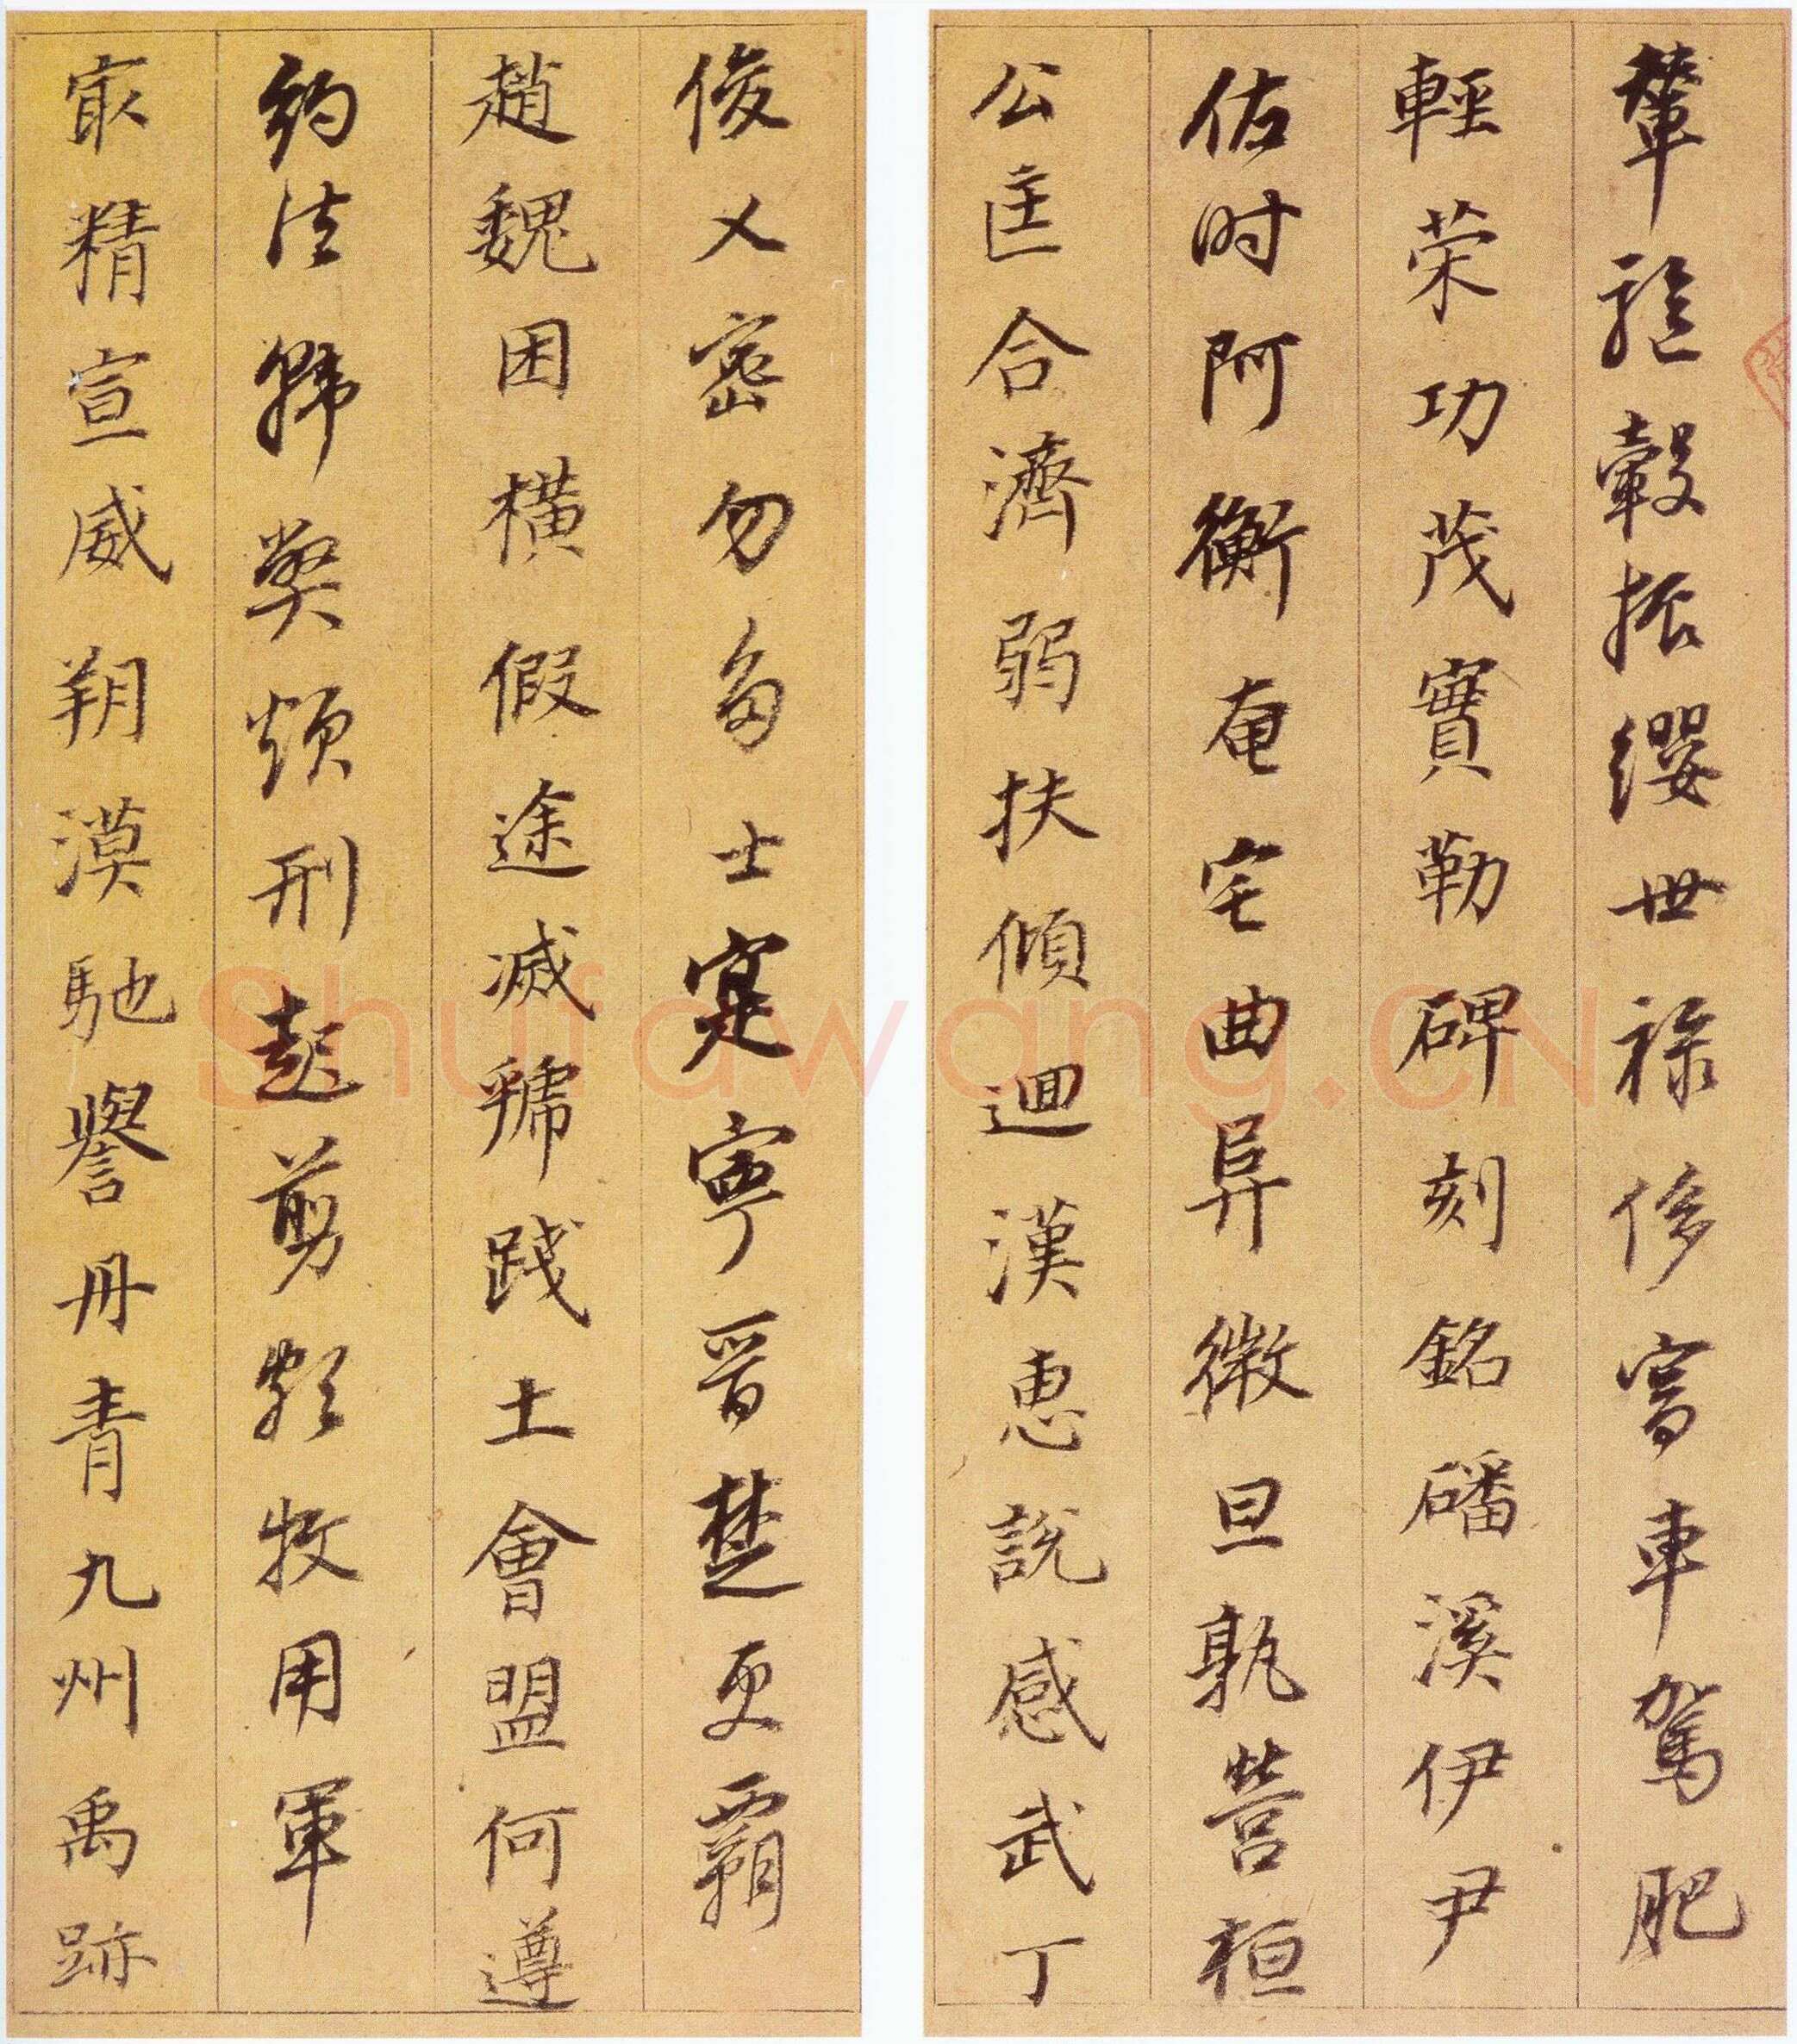 輦駈轂振纓世禄侈富車駕肥
輕荣功茂實勒碑刻銘磻溪伊尹
佑时阿衡奄宅曲阜微旦孰營桓
公匡合濟弱扶傾迴漢惠說感武丁
俊乂密勿多士寔寧晉楚更覇
趙魏困橫假途滅虢踐土會盟何遵
約法韩獘煩刑起剪頗牧用軍
冣精宣威朔漠馳譽丹青九州禹跡
Shufawang.CN